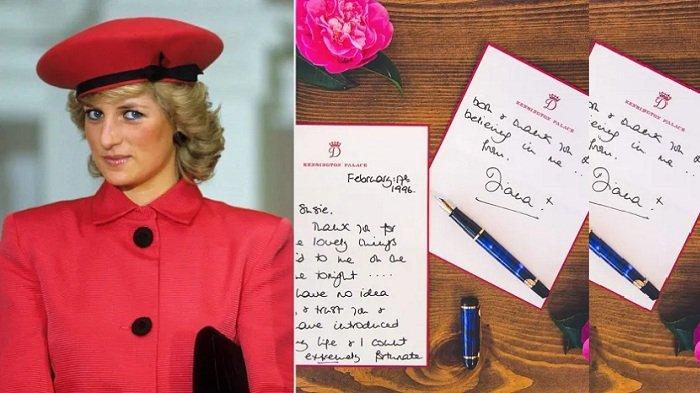 D
KENSINGTON PALACE
February:
1996.
Susie.
Thank you for
lovely things
to me on the
tonight .....
have no idea
& trust you &
introduced
life & I count
extremely fortunate
D
KENSINGTON PALACE
& thank you
believing in me ...
from.
Diana x
D
KENSINGTON PALACE
& thank you
believing in me ...
from.
Diana x